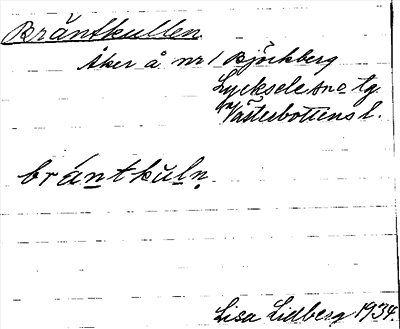 Bräntkullen
Åker å nr 1 Björkberg
Lycksele sn o tg.
Västerbottens l.
brántkuln
Lisa Lidberg 1934.